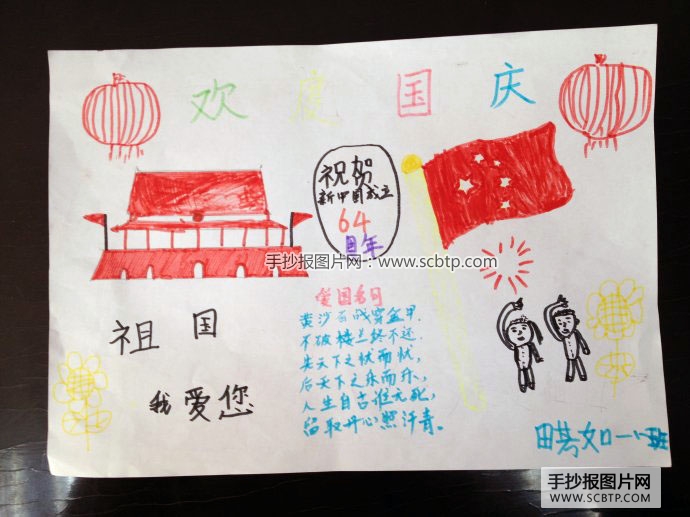 欢度国庆
祝贺
新中国成立
64
周年
手抄报图片网：www.scbtp.com
爱国名句
黄沙百战穿金甲，
不破楼兰终不还。
先天下之忧而忧，
后天下之乐而乐，
人生自古谁无死，
留取丹心照汗青。
祖国
我爱您
手抄报图片网
WWW.SCBTP.COM